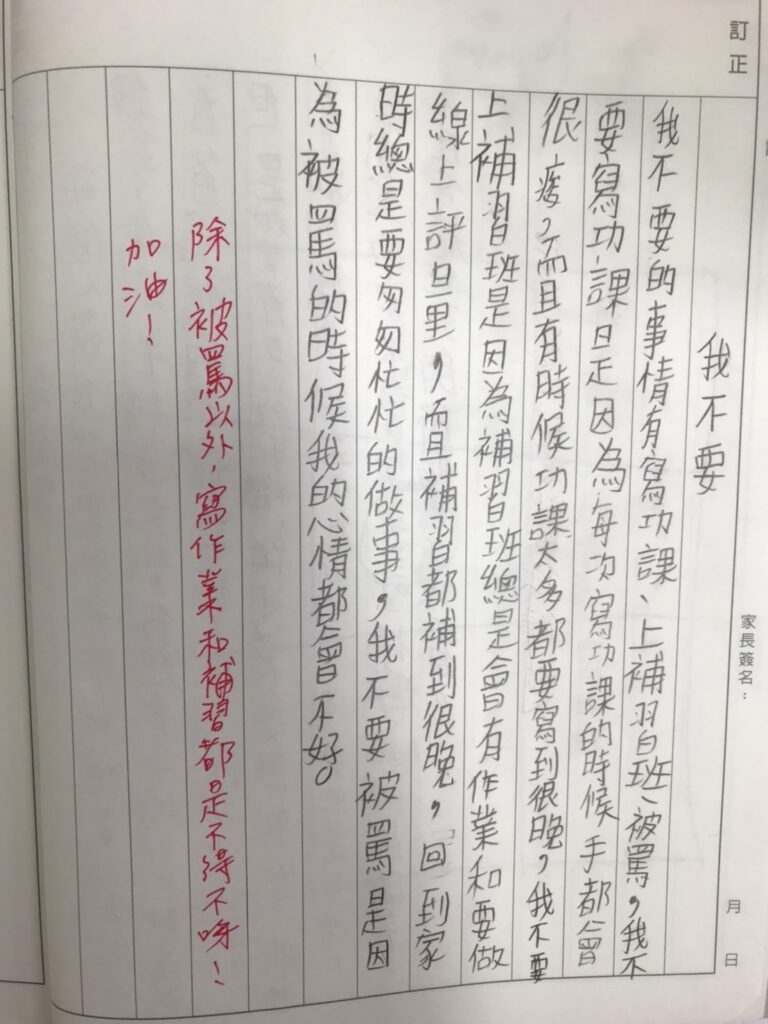 訂正
家長簽名：
月 日
我不要
我不要的事情有寫功課、上補習班、被罵，我不
要寫功課是因為每次寫功課的時候手都會
很痠，而且有時候功課太多都要寫到很晚，我不要
上補習班是因為補習班總是會有作業和要做
線上評量，而且補習都補到很晚，回到家
時總是要匆匆忙忙的做事，我不要被罵是因
為被罵的時候我的心情都會不好。
除了被罵以外，寫作業和補習都是不得不呀！
加油！